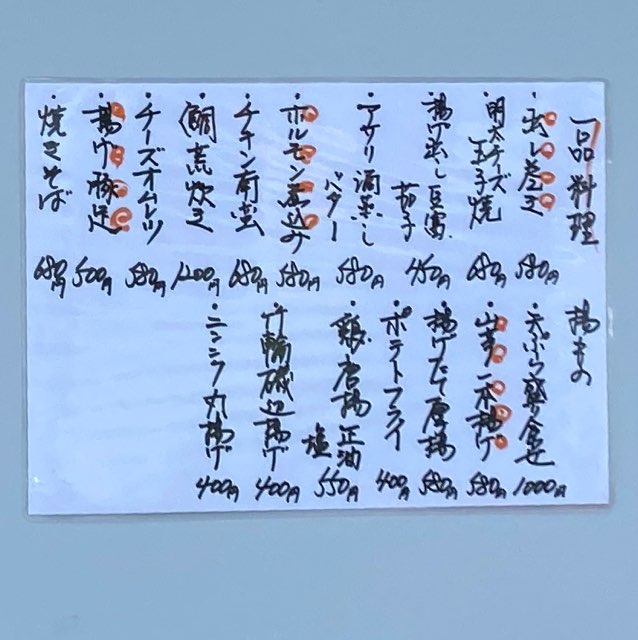 一品料理
・出し巻き 580円
・明太チーズ玉子焼 680円
・揚げ出し豆富、茄子 450円
・アサリ酒蒸しバター 580円
・ホルモン煮込み 580円
・チキン南蛮 680円
・鯛荒炊き 1200円
・チーズオムレツ 580円
・揚げ豚足 500円
・焼きそば 680円
揚もの
・天ぷら盛り合せ 1000円
・山芋一本揚げ 580円
・揚げたて厚揚 580円
・ポテトフライ 400円
・鶏唐揚 正油 塩 550円
・竹輪磯辺揚げ 400円
・ニンニク丸揚げ 400円